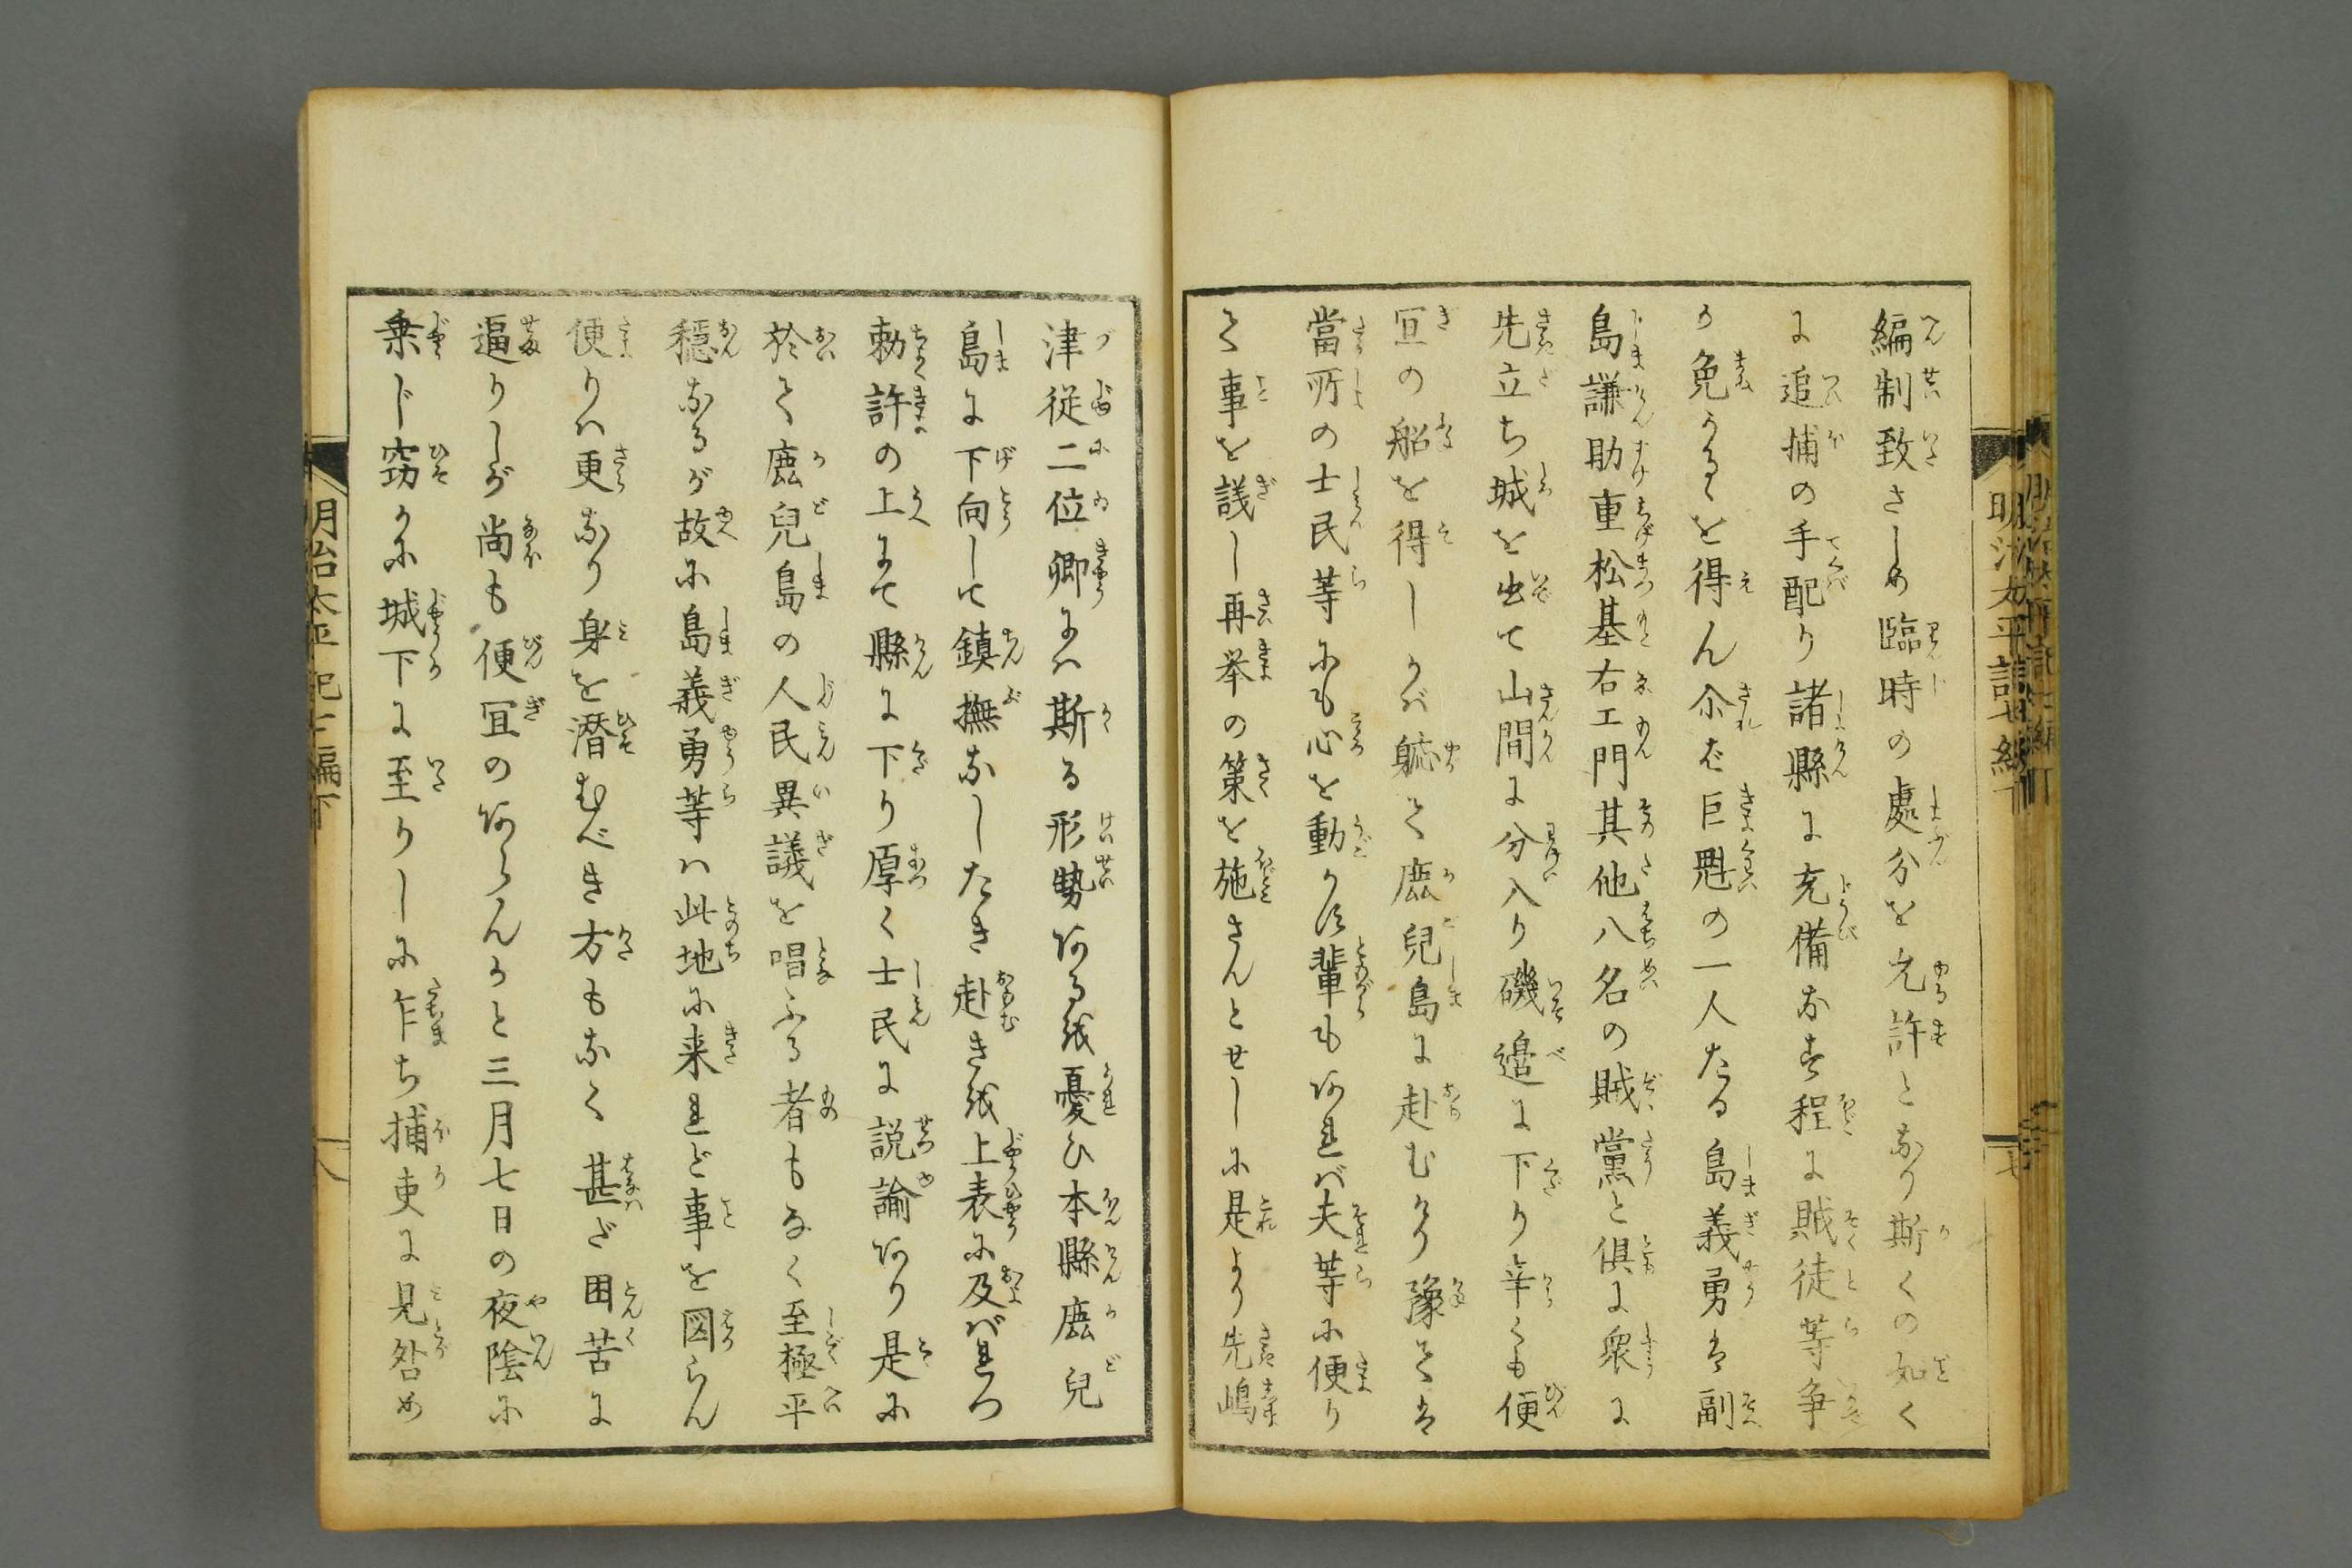 編制致さしめ臨時の處分を允許となり斯くの如く
に追捕の手配り諸縣に充備なす程に賊徒等争
か免るゝを得ん尒ど巨魁の一人たる島義勇は副
島謙助重松基右エ門其他八名の賊黨と倶に衆に
先立ち城を出て山間に分入り磯邉に下り辛くも便
冝の船を得しかバ躰て鹿兒島に赴むけり豫ては
當所の士民等にも心を動かす輩もあれバ夫等に便り
て事を議し再挙の策を施さんとせしに是より先嶋
津従二位卿にハ斯る形勢あるを憂ひ本縣鹿兒
島に下向して鎮撫なしたき赴きを上表に及バれつ
勅許の上にて縣に下り厚く士民に説諭あり是に
於て鹿兒島の人民異議を唱ふる者もなく至極平
穏なるが故に島義勇等ハ此地に来れど事を図らん
便りハ更なり身を潜むべき方もなく甚ざ困苦に
逼りしが尚も便冝のあらんかと三月七日の夜陰に
乗じ窃かに城下に至りしに乍ち捕吏に見咎め
明治太平記十編下
八